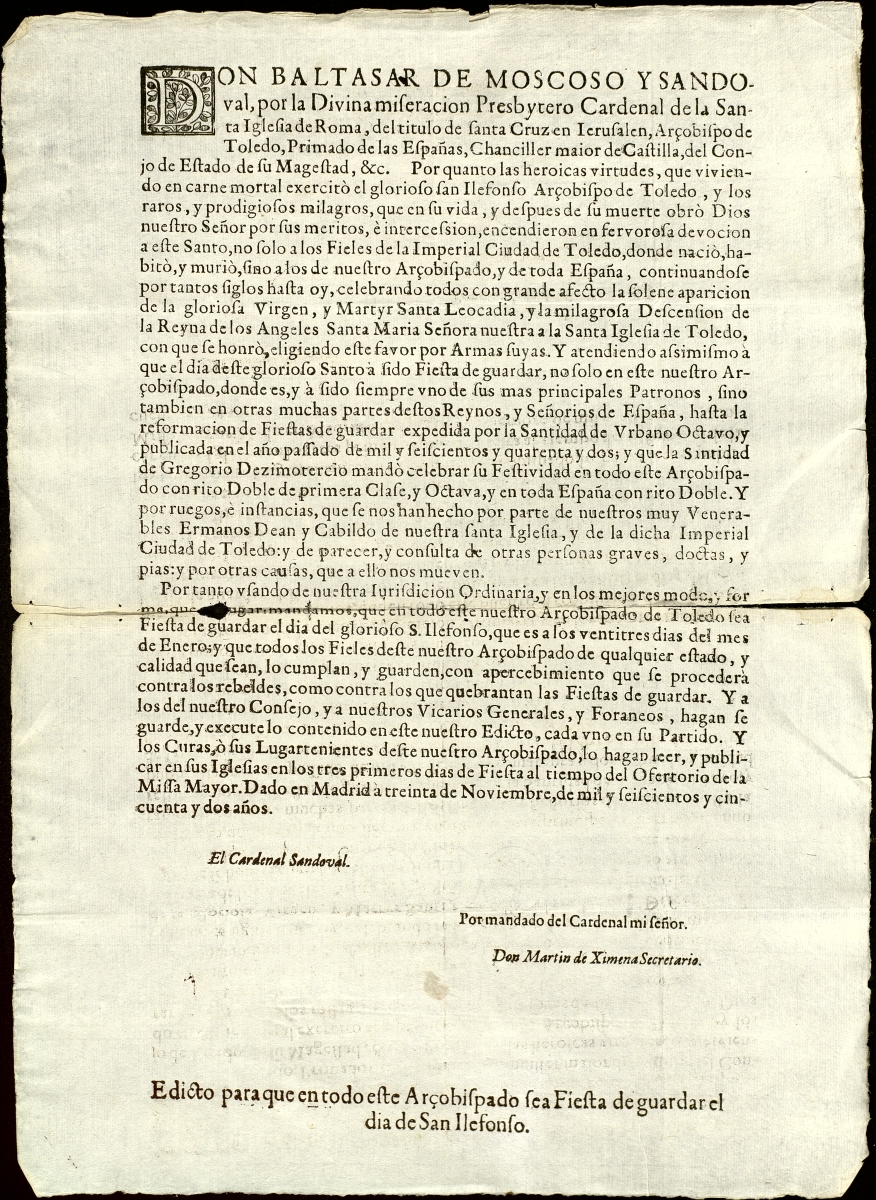 DON BALTASAR DE MOSCOSO Y SANDO-
val, por la Divina miseracion Presbytero Cardenal de la San-
ta Iglesia de Roma, del titulo de santa Cruz en Ierusalen, Arçobispo de
Toledo, Primado de las Españas, Chanciller maior de Castilla, del Con-
jo de Estado de su Magestad, &c. Por quanto las heroicas virtudes, que vivien-
do en carne mortal exercitò el glorioso san Ilefonso Arçobispo de Toledo, y los
raros, y prodigiosos milagros, que en su vida, y despues de su muerte obrò Dios
nuestro Señor por sus meritos, è intercession, encendieron en fervorosa devocion
a este Santo, no solo a los Fieles de la Imperial Ciudad de Toledo, donde naciò, ha-
bitò, y muriò, sino a los de nuestro Arçobispado, y de toda España, continuandose
por tantos siglos hasta oy, celebrando todos con grande afecto la solene aparicion
de la gloriosa Virgen, y Martyr Santa Leocadia, y la milagrosa Descension de
la Reyna de los Angeles Santa Maria Señora nuestra a la Santa Iglesia de Toledo,
con que se honrò, eligiendo este favor por Armas suyas. Y atendiendo assimismo à
que el dia deste glorioso Santo à sido Fiesta de guardar, no solo en este nuestro Ar-
çobispado, donde es, y à sido siempre vno de sus mas principales Patronos, sino
tambien en otras muchas partes destos Reynos, y Señorios de España, hasta la
reformacion de Fiestas de guardar expedida por la Santidad de Vrbano Octavo, y
publicada en el año passado de mil y seiscientos y quarenta y dos; y que la Santidad
de Gregorio Dezimotercio mandò celebrar su Festividad en todo este Arçobispa-
do con rito Doble de primera Clase, y Octava, y en toda España con rito Doble. Y
por ruegos, è instancias, que se nos han hecho por parte de nuestros muy Venera-
bles Ermanos Dean y Cabildo de nuestra santa Iglesia, y de la dicha Imperial
Ciudad de Toledo: y de parecer, y consulta de otras personas graves, doctas, y
pias: y por otras causas, que a ello nos mueven.
Por tanto vsando de nuestra Iurisdicion Ordinaria, y en los mejores modo, y for
ma, que lugar, mandamos, que en todo este nuestro Arçobispado de Toledo sea
Fiesta de guardar el dia del glorioso S. Ilefonso, que es a los ventitres dias del mes
de Enero; y que todos los Fieles deste nuestro Arçobispado de qualquier estado, y
calidad que sean, lo cumplan, y guarden, con apercebimiento que se procederà
contra los rebeldes, como contra los que quebrantan las Fiestas de guardar. Y a
los del nuestro Consejo, y a nuestros Vicarios Generales, y Foraneos, hagan se
guarde, y execute lo contenido en este nuestro Edicto, cada vno en su Partido. Y
los Curas, ò sus Lugartenientes deste nuestro Arçobispado, lo hagan leer, y publi-
car en sus Iglesias en los tres primeros dias de Fiesta al tiempo del Ofertorio de la
Missa Mayor. Dado en Madrid à treinta de Noviembre, de mil y seiscientos y cin-
cuenta y dos años.
El Cardenal Sandoval.
Por mandado del Cardenal mi señor.
Don Martin de Ximena Secretario.
Edicto para que en todo este Arçobispado sea Fiesta de guardar el
dia de San Ilefonso.